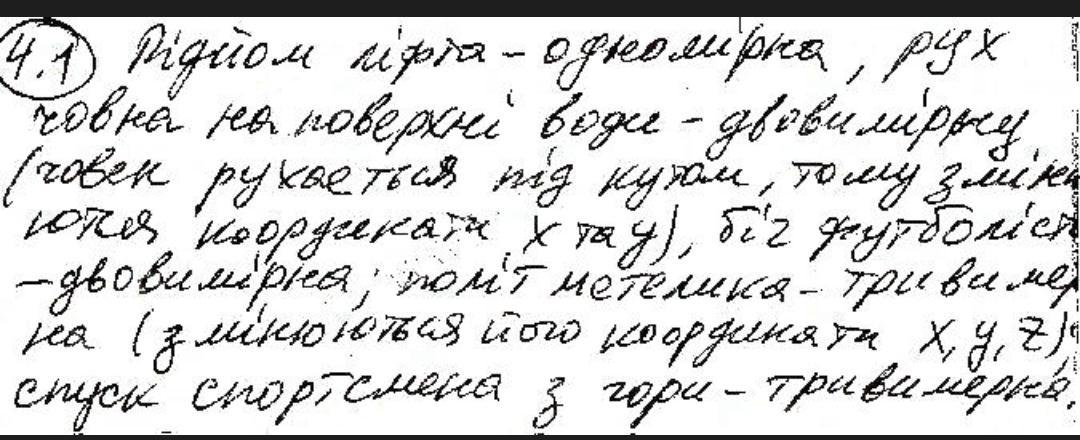 4.1 Підйом ліфта - одномірна, рух
човна на поверхні води - двовимірну
(човен рухається під кутом, тому зміню
ються координати x та y), біг футболіст
- двовимірна; політ метелика - тривимер
на (змінюються його координати x, y, z);
спуск спортсмена з гори - тривимерна.